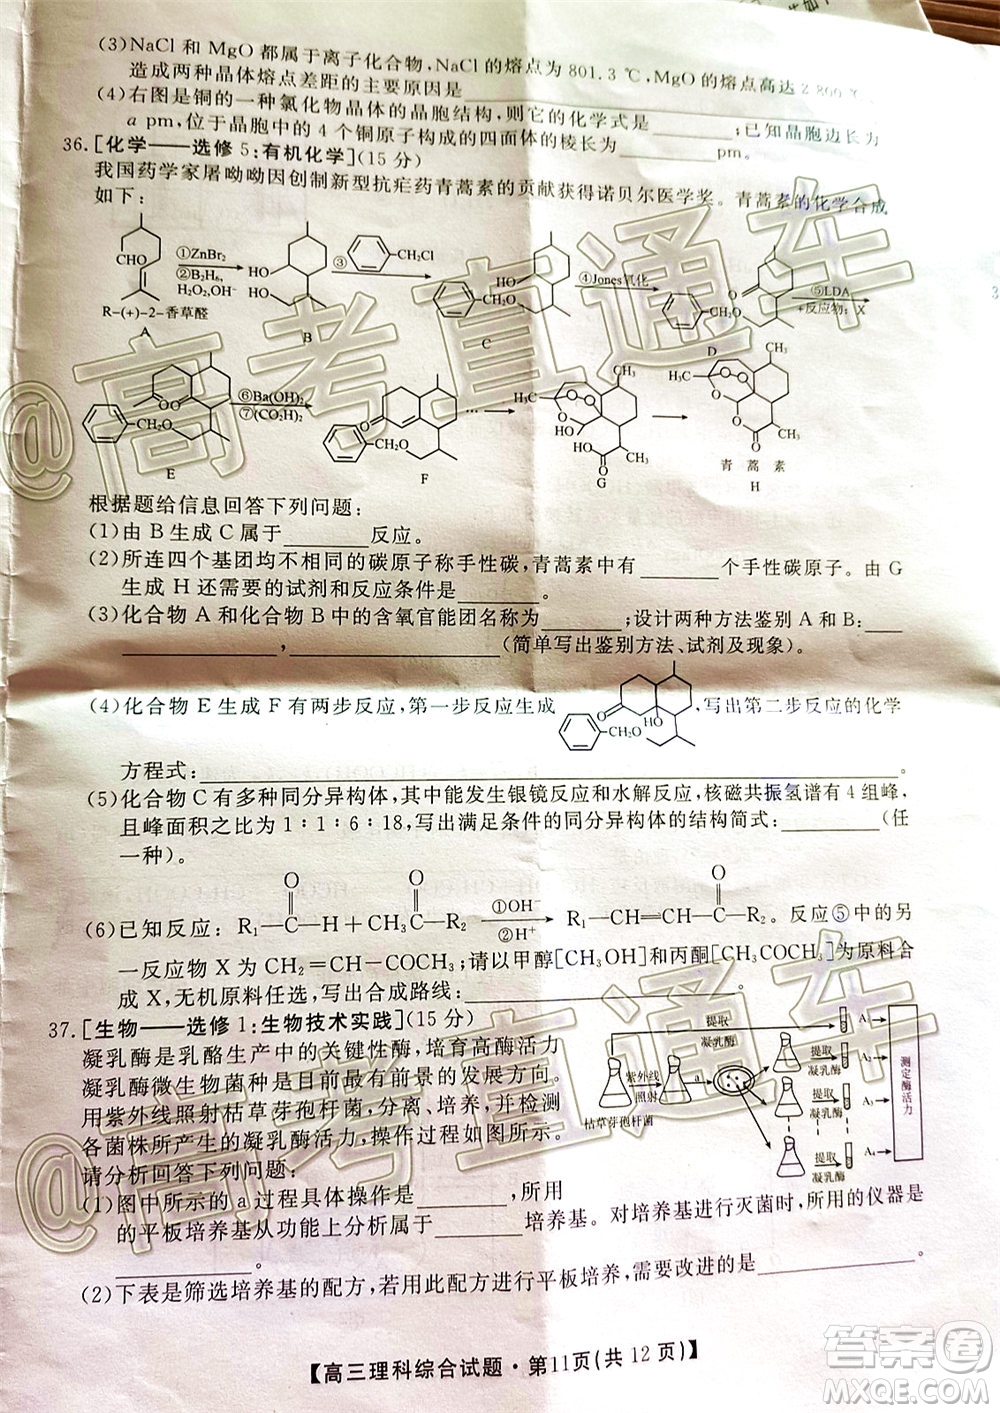 (3)NaCl 和 MgO 都属于离子化合物,NaCl 的熔点为 801.3 ℃,MgO 的熔点高达 2 800 ℃,
造成两种晶体熔点差距的主要原因是
(4)右图是铜的一种氯化物晶体的晶胞结构,则它的化学式是________;已知晶胞边长为
a pm,位于晶胞中的 4 个铜原子构成的四面体的棱长为________pm。
36.[化学——选修 5:有机化学](15 分)
我国药学家屠呦呦因创制新型抗疟药青蒿素的贡献获得诺贝尔医学奖。青蒿素的化学合成
如下:
CHO
R-(+)-2-香草醛
A
①ZnBr2
②B2H6,
H2O2,OH-
HO
HO
B
③
CH2Cl
HO
CH2O
C
④Jones氧化
O
CH2O
D
⑤LDA
+反应物: X
O
O
CH2O
E
⑥Ba(OH)2
⑦(CO2H)2
O
CH2O
F
…
CH3
H3C
O
HO
HO
O
CH3
G
CH3
H3C
O
CH3
青 蒿 素
H
根据题给信息回答下列问题:
(1)由 B 生成 C 属于________反应。
(2)所连四个基团均不相同的碳原子称手性碳,青蒿素中有________个手性碳原子。由 G
生成 H 还需要的试剂和反应条件是________。
(3)化合物 A 和化合物 B 中的含氧官能团名称为________;设计两种方法鉴别 A 和 B:____
________,________________(简单写出鉴别方法、试剂及现象)。
(4)化合物 E 生成 F 有两步反应,第一步反应生成
O
HO
CH2O
,写出第二步反应的化学
方程式:________________________________。
(5)化合物 C 有多种同分异构体,其中能发生银镜反应和水解反应,核磁共振氢谱有 4 组峰,
且峰面积之比为 1∶1∶6∶18,写出满足条件的同分异构体的结构简式:________(任
一种)。
(6)已知反应: R1—C(O)—H+CH3C(O)—R2 ①OH- ②H+ R1—CH═CH—C(O)—R2。反应⑤中的另
一反应物 X 为 CH2═CH—COCH3;请以甲醇[CH3OH]和丙酮[CH3COCH3]为原料合
成 X,无机原料任选,写出合成路线:________________________。
37.[生物——选修 1:生物技术实践](15 分)
凝乳酶是乳酪生产中的关键性酶,培育高酶活力
凝乳酶微生物菌种是目前最有前景的发展方向。
用紫外线照射枯草芽孢杆菌,分离、培养,并检测
各菌株所产生的凝乳酶活力,操作过程如图所示。
请分析回答下列问题:
提取
凝乳酶
A1
紫外线
照射
枯草芽孢杆菌
a
提取
凝乳酶
A2
A3
提取
凝乳酶
A4
测定酶活力
(1)图中所示的 a 过程具体操作是________,所用
的平板培养基从功能上分析属于________培养基。对培养基进行灭菌时,所用的仪器是
________。
(2)下表是筛选培养基的配方,若用此配方进行平板培养,需要改进的是________。
【高三理科综合试题·第11页(共 12 页)】
@高考直通车
@高考直通车
答案圈
MXQE.COM